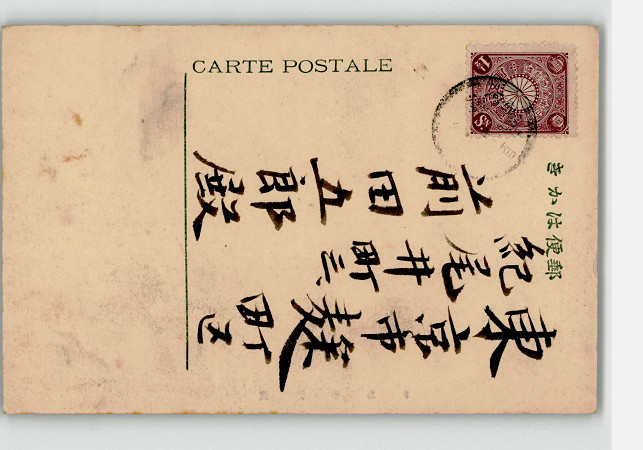 CARTE POSTALE
郵便はかき
東京市麹町区
紀尾井町三、
前田五郎殿